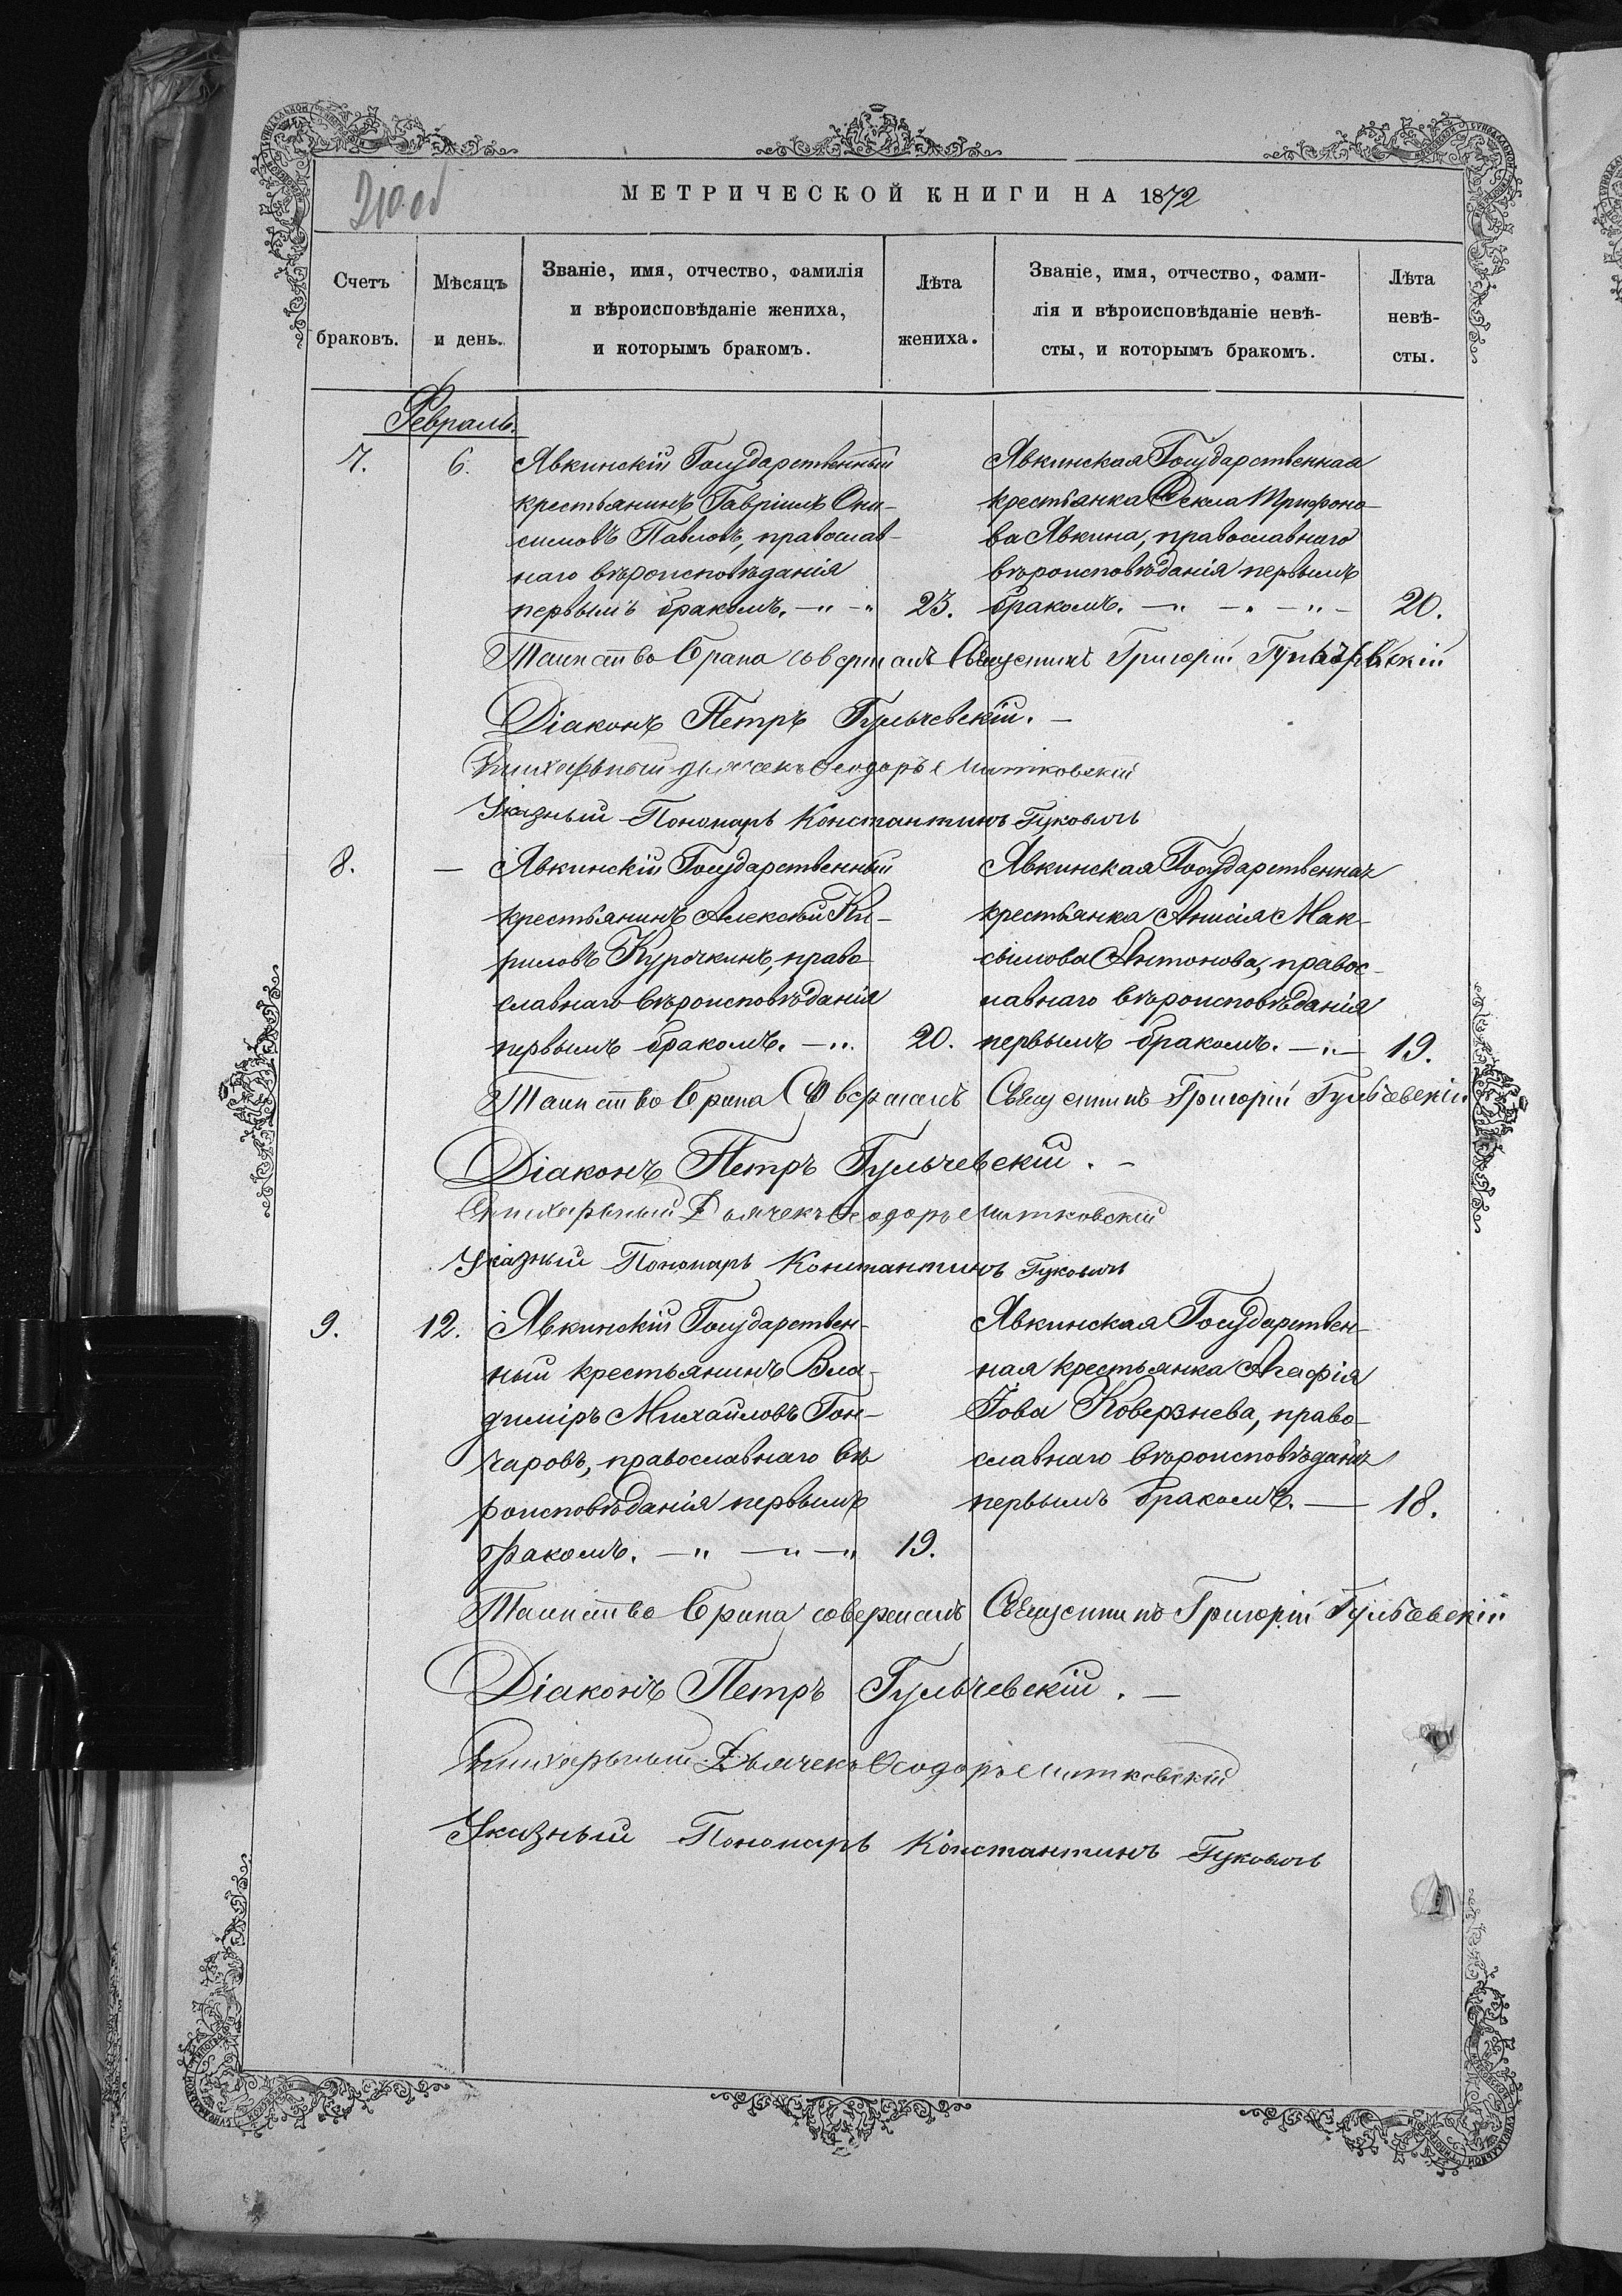 210 об
МЕТРИЧЕСКОЙ КНИГИ НА 1872
Счетъ браковъ.
Мѣсяцъ и день.
Званіе, имя, отчество, фамилія
и вѣроисповѣданіе жениха,
и которымъ бракомъ.
Лѣта жениха.
Званіе, имя, отчество, фами-
лія и вѣроисповѣданіе невѣ-
сты, и которымъ бракомъ.
Лѣта невѣ-
сты.
Февраль.
7. 6.
Явкинскій Государственный
крестьянинъ Гавріилъ Они-
симовъ Павловъ, православ-
наго вѣроисповѣданія
первымъ бракомъ. 23.
Явкинская Государственная
крестьянка Ѳекла Трифоно-
ва Явкина, православнаго
вѣроисповѣданія первымъ
бракомъ. 20.
Таинство брака совершалъ Священникъ Григорій Гульчевскій
Діаконъ Петръ Гульчевскій.
Стихарный дьячекъ Ѳеодоръ Митковскій
Указный Пономарь Константинъ Гуковичъ
8. —
Явкинскій Государственный
крестьянинъ Алексѣй Ки-
риловъ Курочкинъ, право-
славнаго вѣроисповѣданія
первымъ бракомъ. 20.
Явкинская Государственная
крестьянка Анисія Мак-
симова Антонова, правос-
лавнаго вѣроисповѣданія
первымъ бракомъ. 19.
Таинство брака Совершалъ Священникъ Григорій Гульчевскій
Діаконъ Петръ Гульчевскій.
Стихарный Дьячекъ Ѳеодоръ Митковскій
Указный Пономарь Константинъ Гуковичъ
9. 12.
Явкинскій Государствен-
ный крестьянинъ Вла-
диміръ Михайловъ Гон-
чаровъ, православнаго вѣ
роисповѣданія первымъ
бракомъ. 19.
Явкинская Государствен-
ная крестьянка Агафія
Іова Коверзнева, право-
славнаго вѣроисповѣданія
первымъ бракомъ. 18.
Таинство брака совершалъ Священникъ Григорій Гульчевскій
Діаконъ Петръ Гульчевскій.
Стихарный Дьячекъ Ѳеодоръ Митковскій
Указный Пономарь Константинъ Гуковичъ